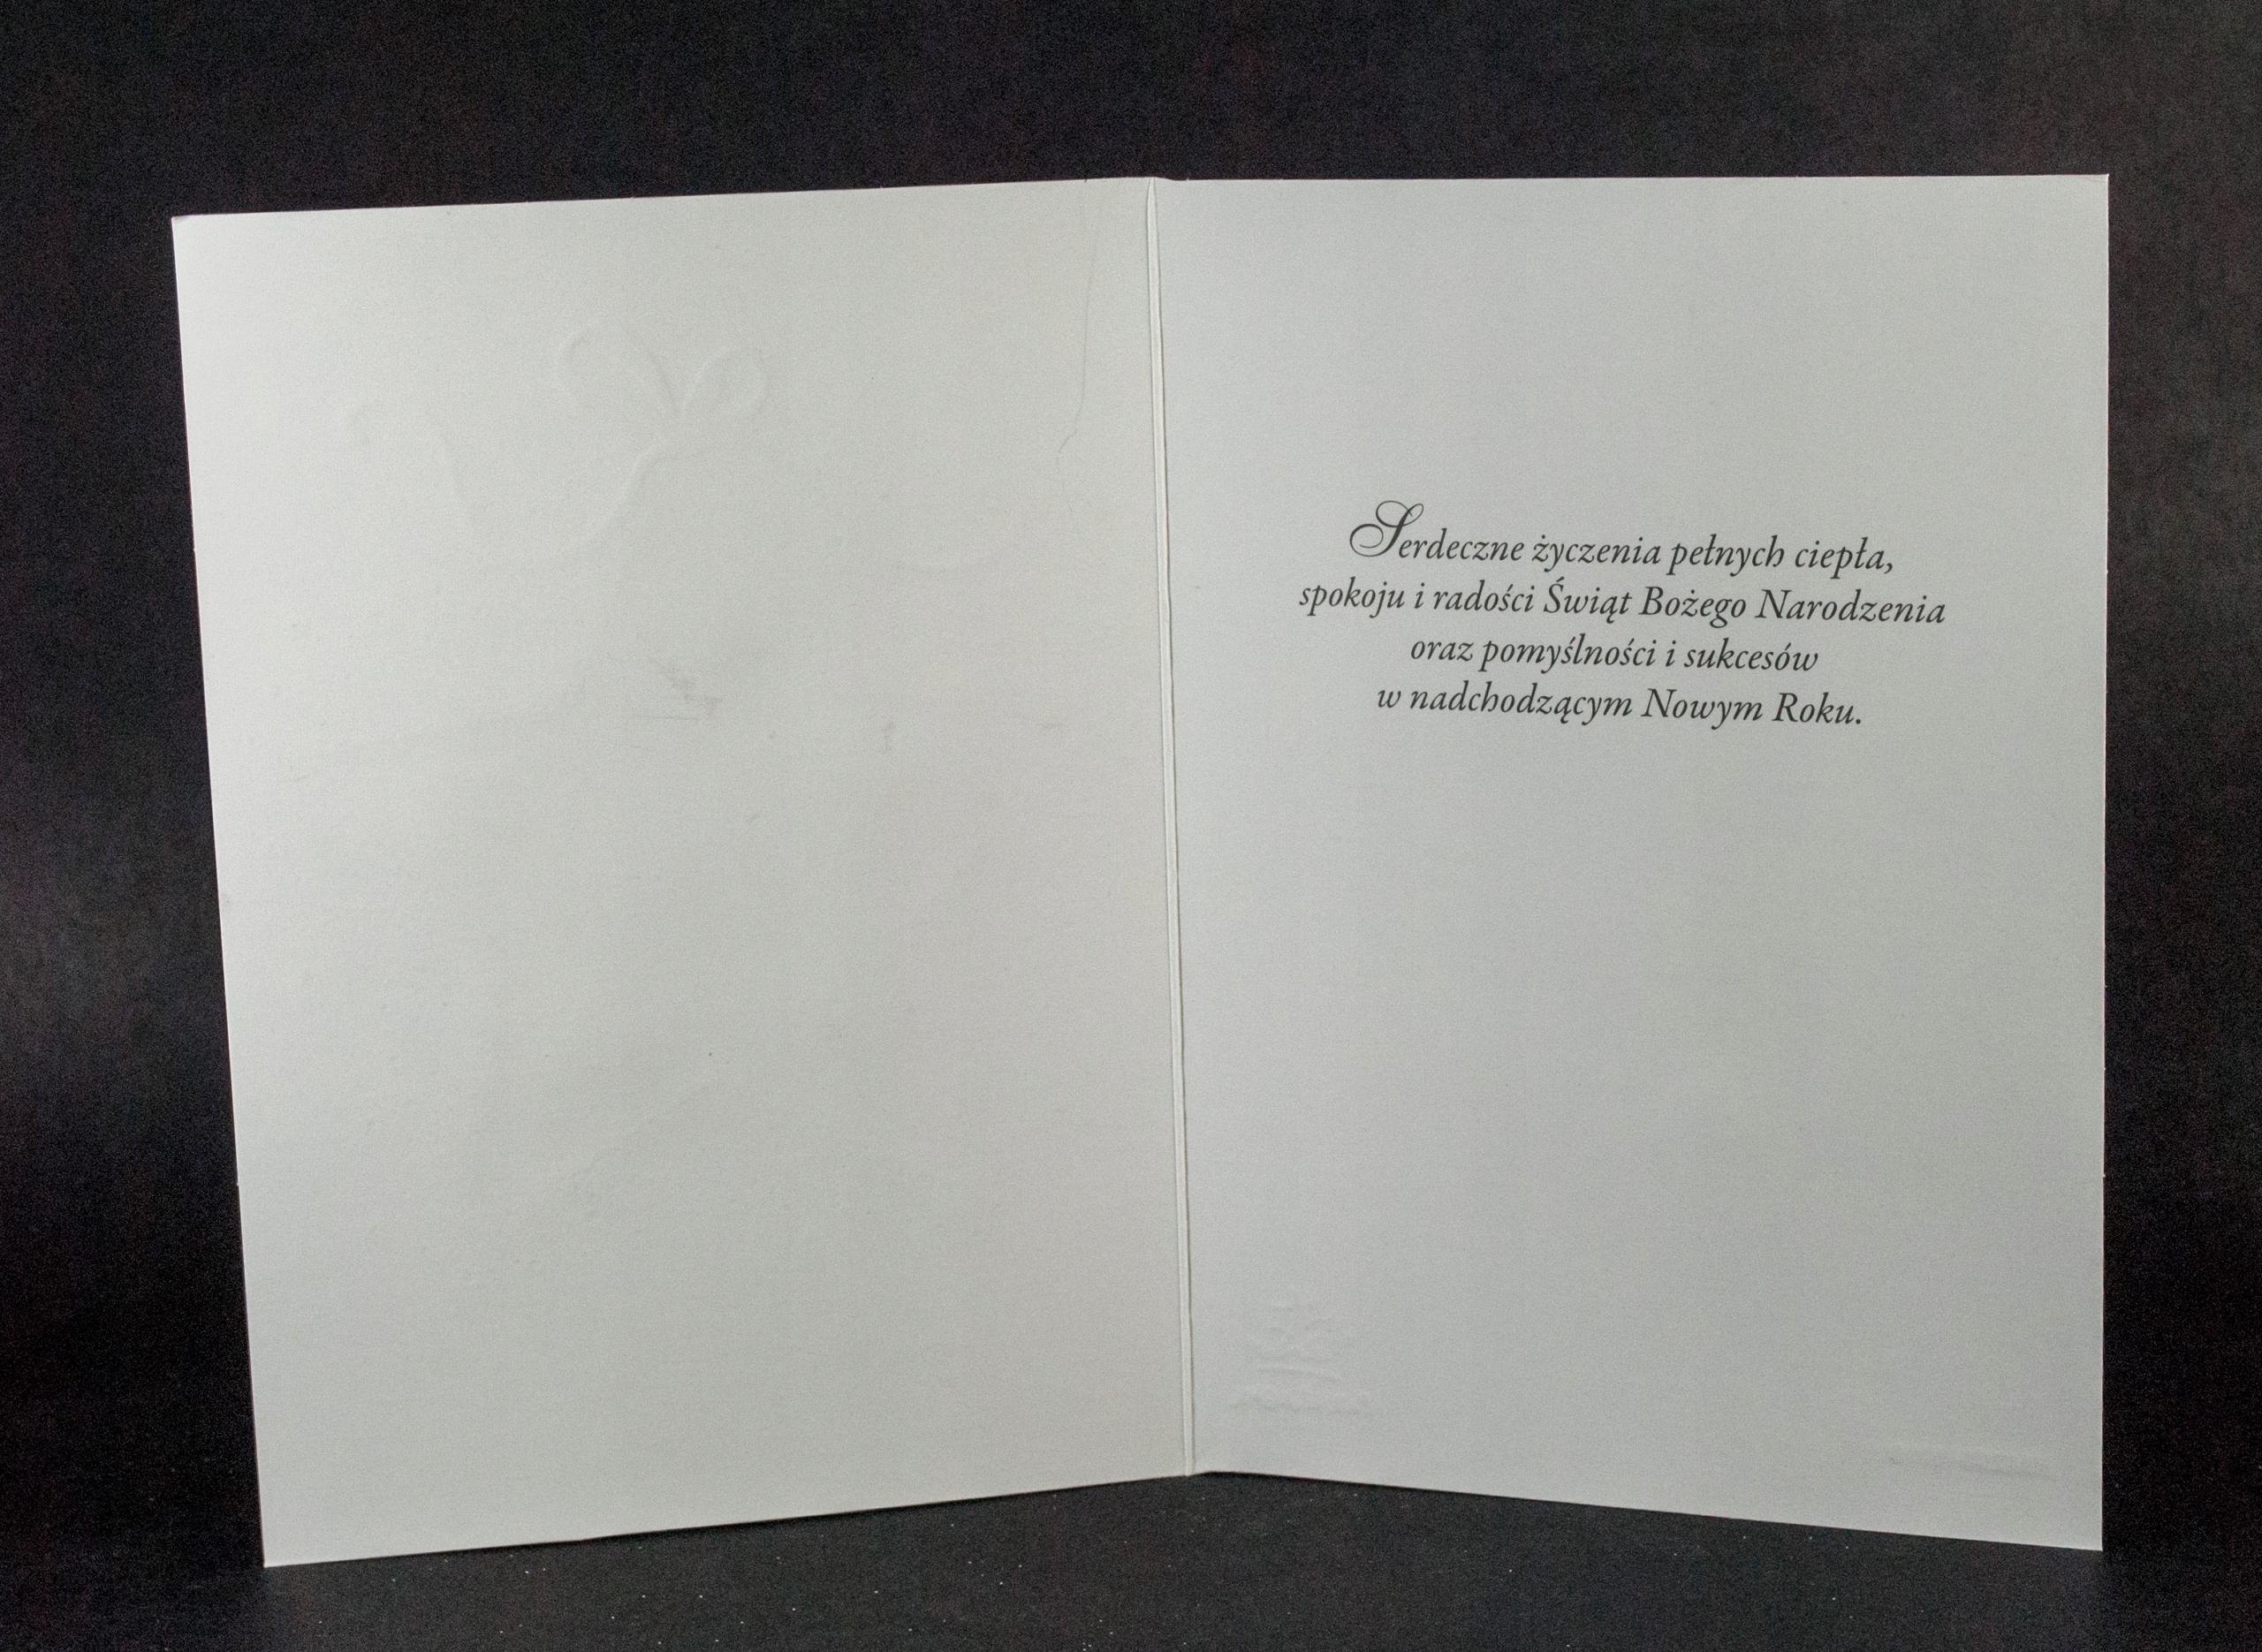 Serdeczne życzenia pełnych ciepła,
spokoju i radości Świąt Bożego Narodzenia
oraz pomyślności i sukcesów
w nadchodzącym Nowym Roku.